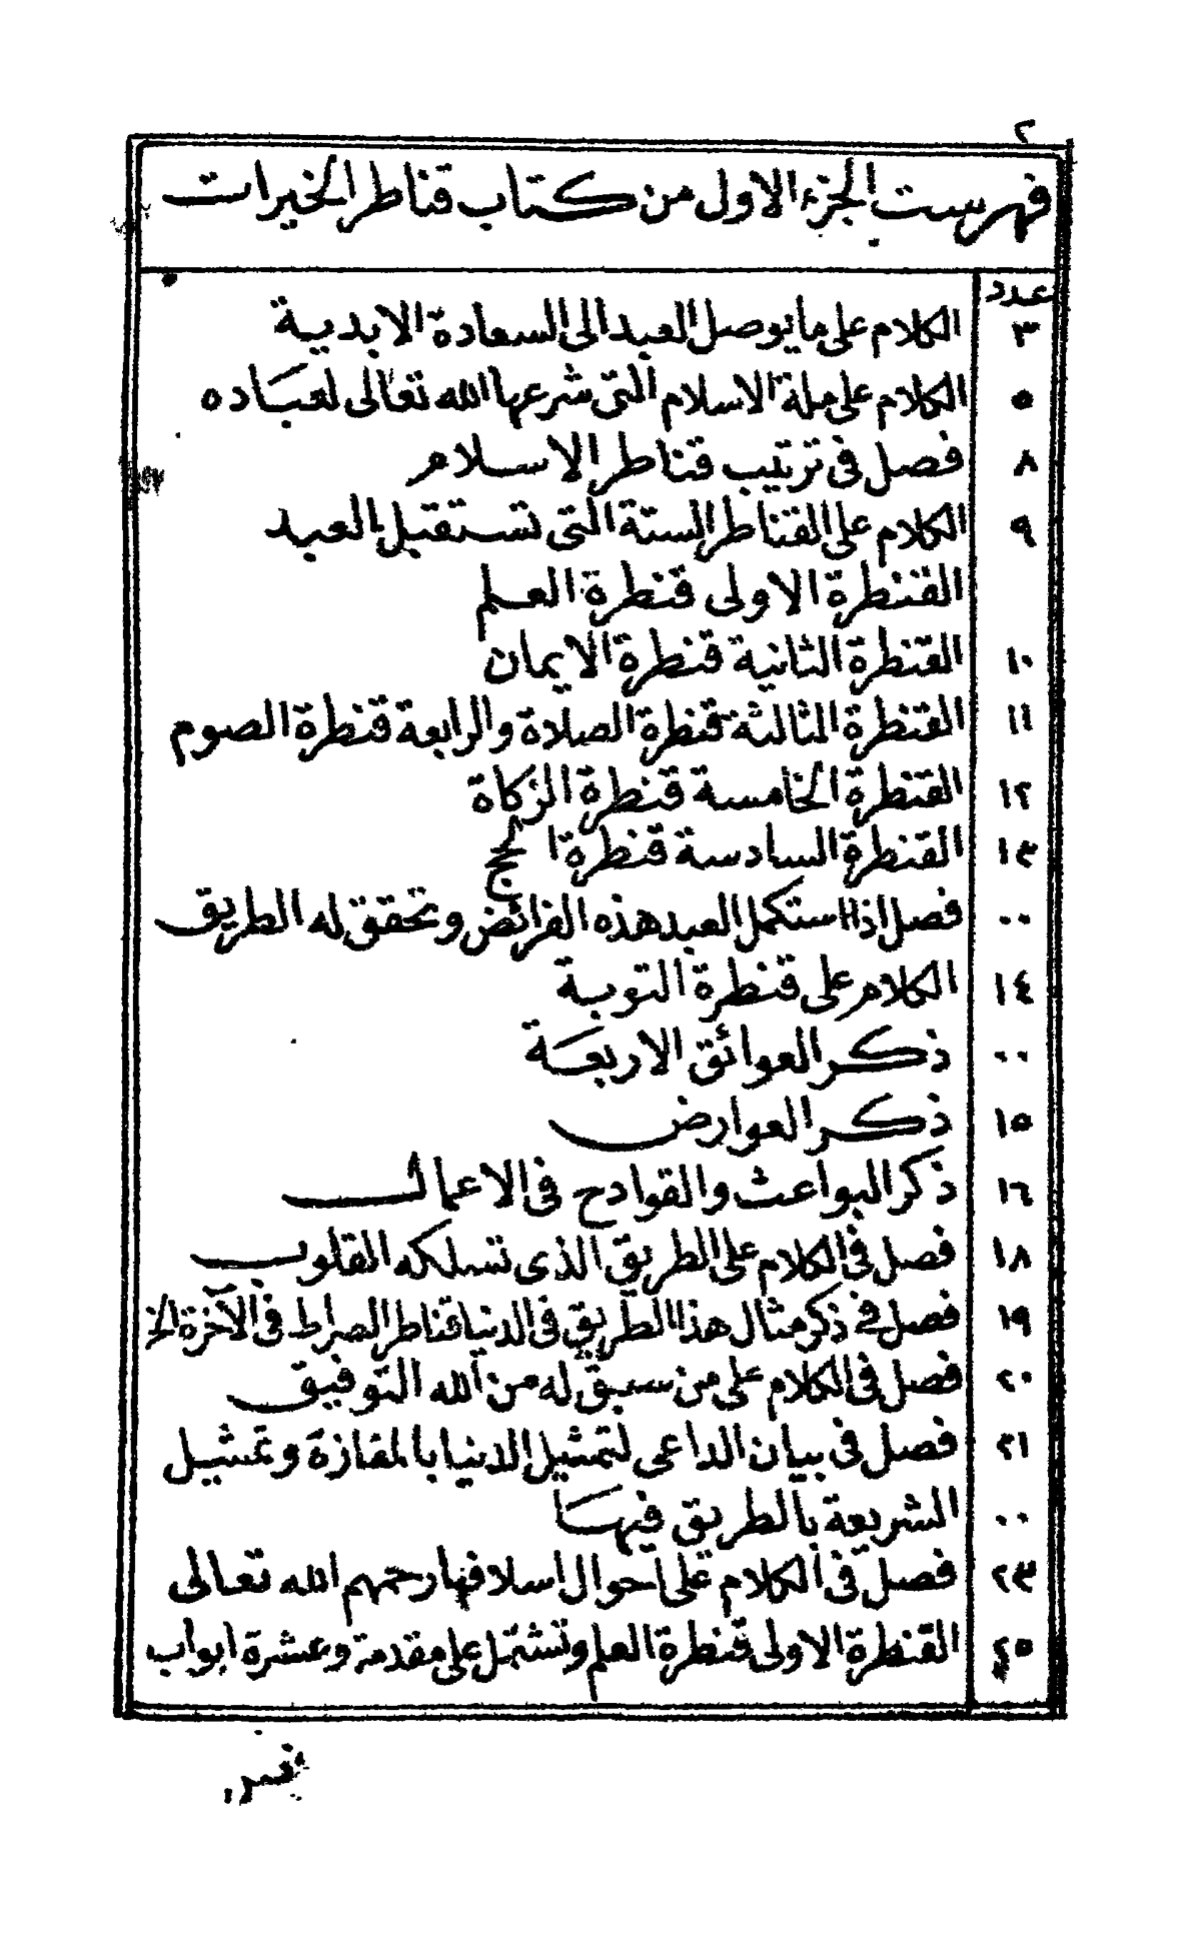 ٢
فهرست الجزء الاول من كتاب قناطر الخيرات
عدد
٣ الكلام على ما يوصل العبد الى السعادة الابدية
٥ الكلام على ملة الاسلام التى شرعها الله تعالى لعباده
٨ فصل فى ترتيب قناطر الاسلام
٩ الكلام على القناطر الستة التى تستقبل العبد
القنطرة الاولى قنطرة العلم
١٠ القنطرة الثانية قنطرة الايمان
١١ القنطرة الثالثة قنطرة الصلاة والرابعة قنطرة الصوم
١٢ القنطرة الخامسة قنطرة الزكاة
١٣ القنطرة السادسة قنطرة الحج
٠٠ فصل اذا استكمل العبد هذه الفرائض وتحقق له الطريق
١٤ الكلام على قنطرة التوبة
٠٠ ذكر العوائق الاربعة
١٥ ذكر العوارض
١٦ ذكر البواعث والقوادح فى الاعمال
١٨ فصل فى الكلام على الطريق الذى تسلكه القلوب
١٩ فصل فى ذكر مثال هذا الطريق فى الدنيا قناطر الصراط فى الآخرة الخ
٢٠ فصل فى الكلام على من سبق له من الله التوفيق
٢١ فصل فى بيان الداعى لتمثيل الدنيا بالمفازة وتمثيل
٠٠ الشريعة بالطريق فيها
٢٣ فصل فى الكلام على احوال اسلافها رحمهم الله تعالى
٢٥ القنطرة الاولى قنطرة العلم وتشتمل على مقدمة وعشرة ابواب